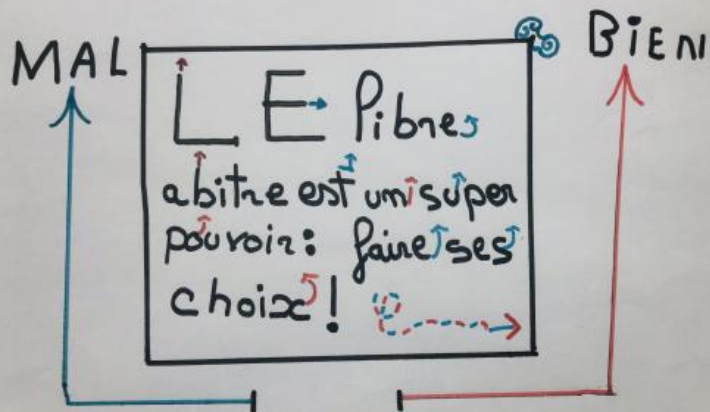 MAL
BiEN
LE libre
abitre est un super
pouvoir: faire ses
choix!